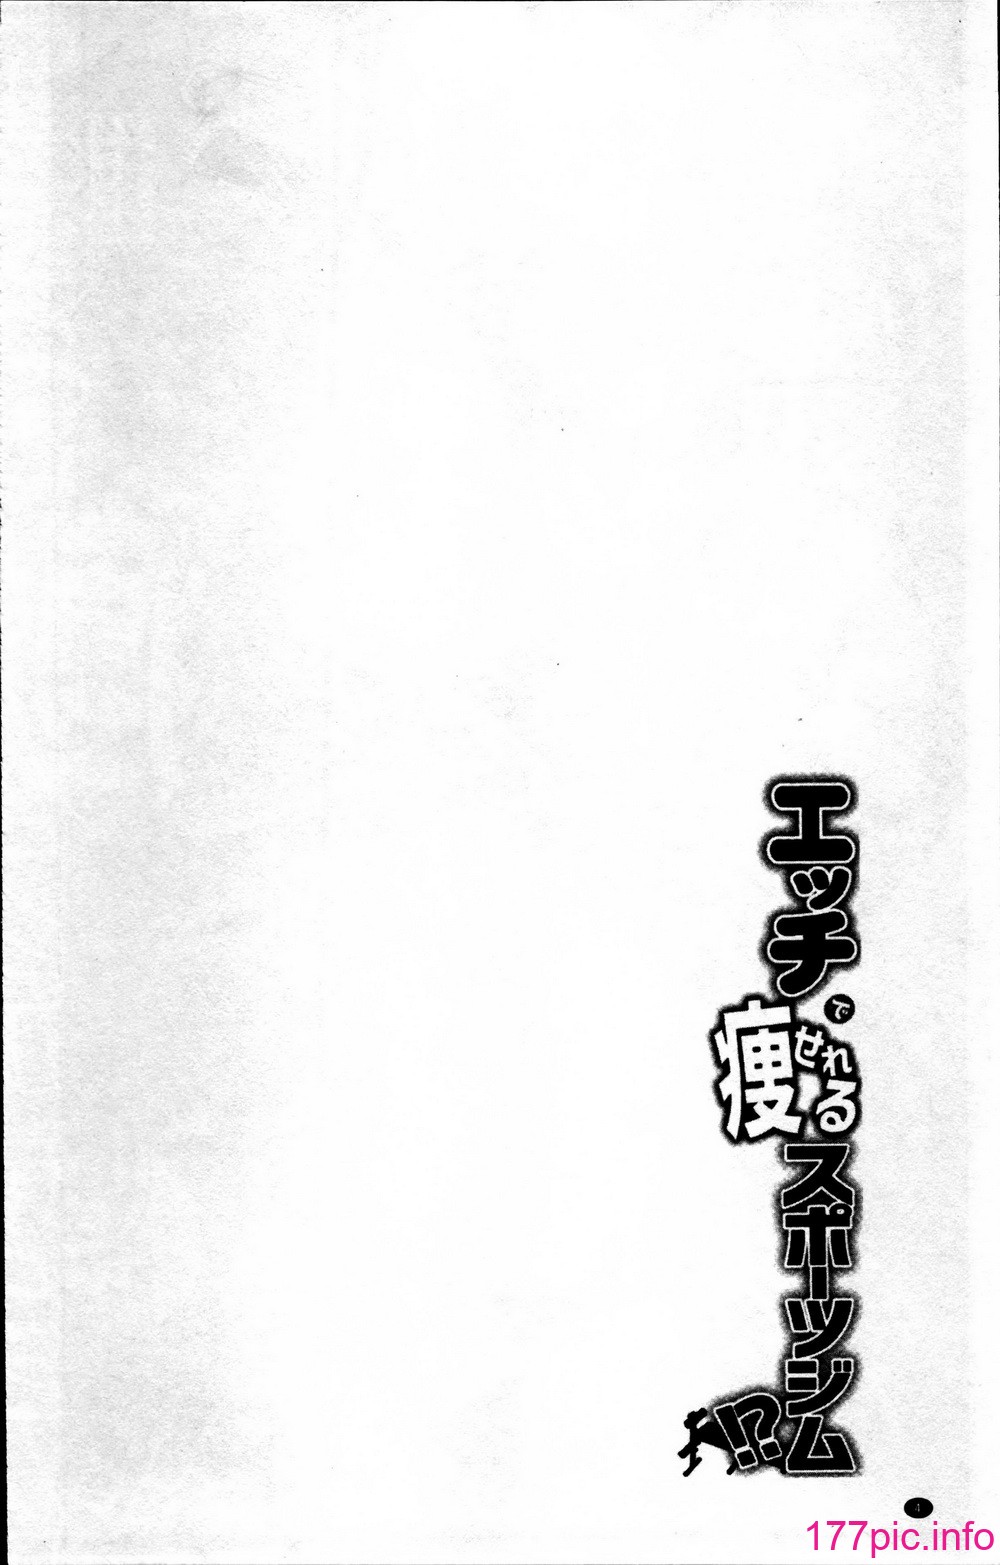 エッチで痩せれるスポーツジム!?
4
177pic.info